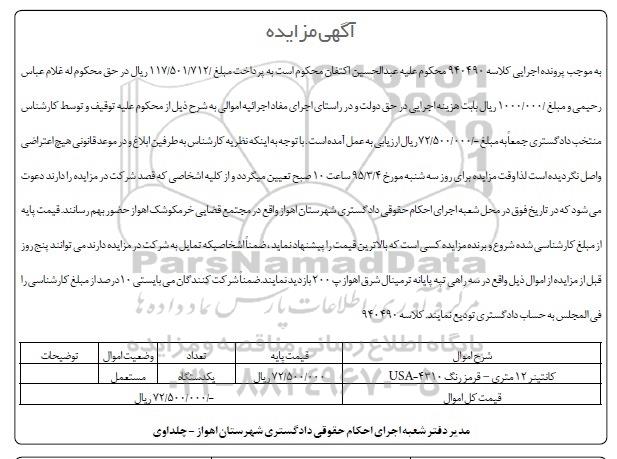 آگهی مزایده
به موجب پرونده اجرایی کلاسه ۹۴۰۴۹۰ محکوم علیه عبدالحسین اکتفان محکوم است به پرداخت مبلغ /۱۱۷/۵۰۱/۷۱۲ ریال در حق محکوم له غلام عباس
رحیمی و مبلغ /۱۰۰۰/۰۰۰ ریال بابت هزینه اجرایی در حق دولت و در راستای اجرای مفاد اجرائیه اموالی به شرح ذیل از محکوم علیه توقیف و توسط کارشناس
منتخب دادگستری جمعاً به مبلغ -/۷۲/۵۰۰/۰۰۰ ریال ارزیابی به عمل آمده است. با توجه به اینکه نظریه کارشناس به طرفین ابلاغ و در موعد قانونی هیچ اعتراضی
واصل نگردیده است لذا وقت مزایده برای روز سه شنبه مورخ ۹۵/۳/۴ ساعت ۱۰ صبح تعیین میگردد و از کلیه اشخاصی که قصد شرکت در مزایده را دارند دعوت
می شود که در تاریخ فوق در محل شعبه اجرای احکام حقوقی دادگستری شهرستان اهواز واقع در مجتمع قضایی خرمکوشک اهواز حضور بهم رسانند. قیمت پایه
از مبلغ کارشناسی شده شروع و برنده مزایده کسی است که بالاترین قیمت را پیشنهاد نماید، ضمناً اشخاصیکه تمایل به شرکت در مزایده دارند می توانند پنج روز
قبل از مزایده از اموال ذیل واقع در سه راهی تپه پایانه ترمینال شرق اهواز پ ۲۰۰ بازدید نمایند. ضمنا شرکت کنندگان می بایستی ۱۰درصد از مبلغ کارشناسی را
فی المجلس به حساب دادگستری تودیع نمایند. کلاسه ۹۴۰۴۹۰
شرح اموال قیمت پایه تعداد وضعیت اموال توضیحات
کانتینر ۱۲ متری – قرمز رنگ USA-۴۳۱۰ ۷۲/۵۰۰/۰۰۰ ریال یکدستگاه مستعمل
قیمت کل اموال -/۷۲/۵۰۰/۰۰۰ ریال
مدیر دفتر شعبه اجرای احکام حقوقی دادگستری شهرستان اهواز - چلداوی
ParsNamadData
مرکز فرآوری اطلاعات پارس نماد داده ها
پایگاه اطلاع رسانی مناقصه و مزایده
۰۲۱-۸۸۳۴۹۶۷۰-۵